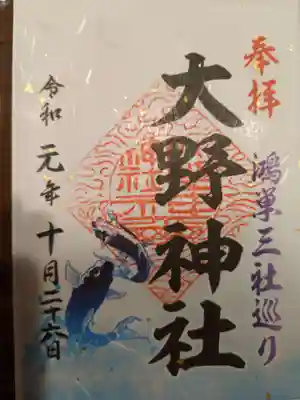 奉拝
鴻巣三社巡り
大野神社
令和元年十月二十六日